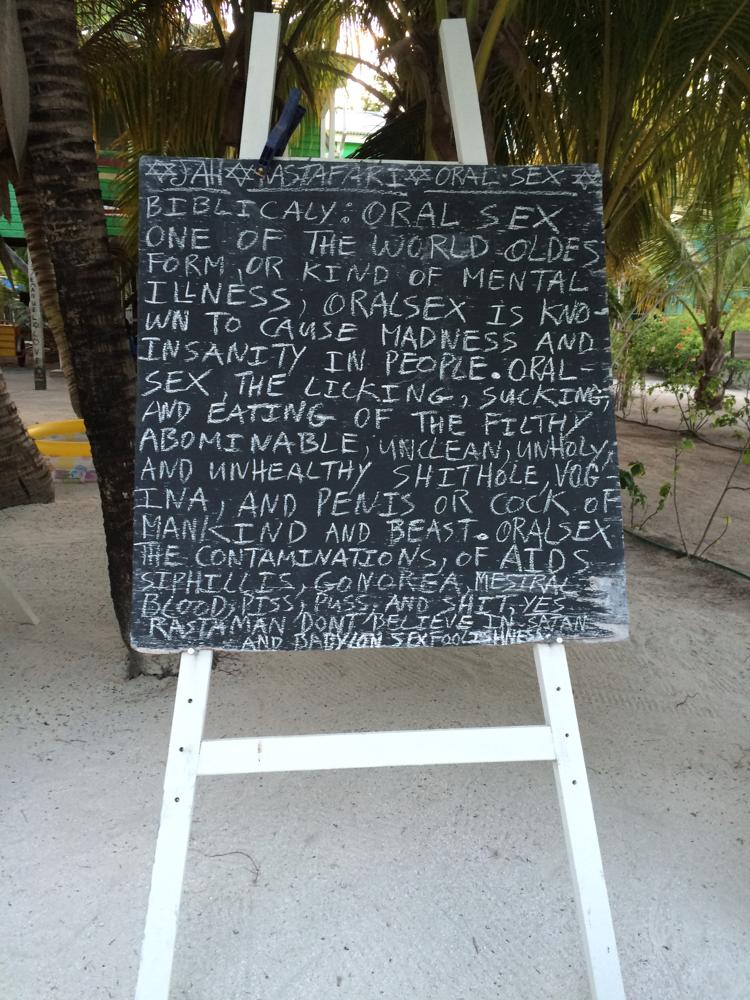 ✡JAH✡RASTAFARI✡ORAL-SEX✡
BIBLICALY: ORAL SEX
ONE OF THE WORLD OLDES
FORM, OR KIND OF MENTAL
ILLNESS, ORALSEX IS KNO-
WN TO CAUSE MADNESS AND
INSANITY IN PEOPLE. ORAL-
SEX, THE LICKING, SUCKING,
AND EATING OF THE FILTHY
ABOMINABLE, UNCLEAN, UNHOLY,
AND UNHEALTHY SHITHOLE, VAG
INA, AND PENIS OR COCK OF
MANKIND AND BEAST. ORALSEX
THE CONTAMINATIONS, OF AIDS
SIPHILLIS, GONOREA, MESTRAL
BLOOD, PISS, PUSS, AND SHIT, YES
RASTAMAN DONT BELIEVE IN SATAN
AND BABYLON SEX FOOLISHNESS